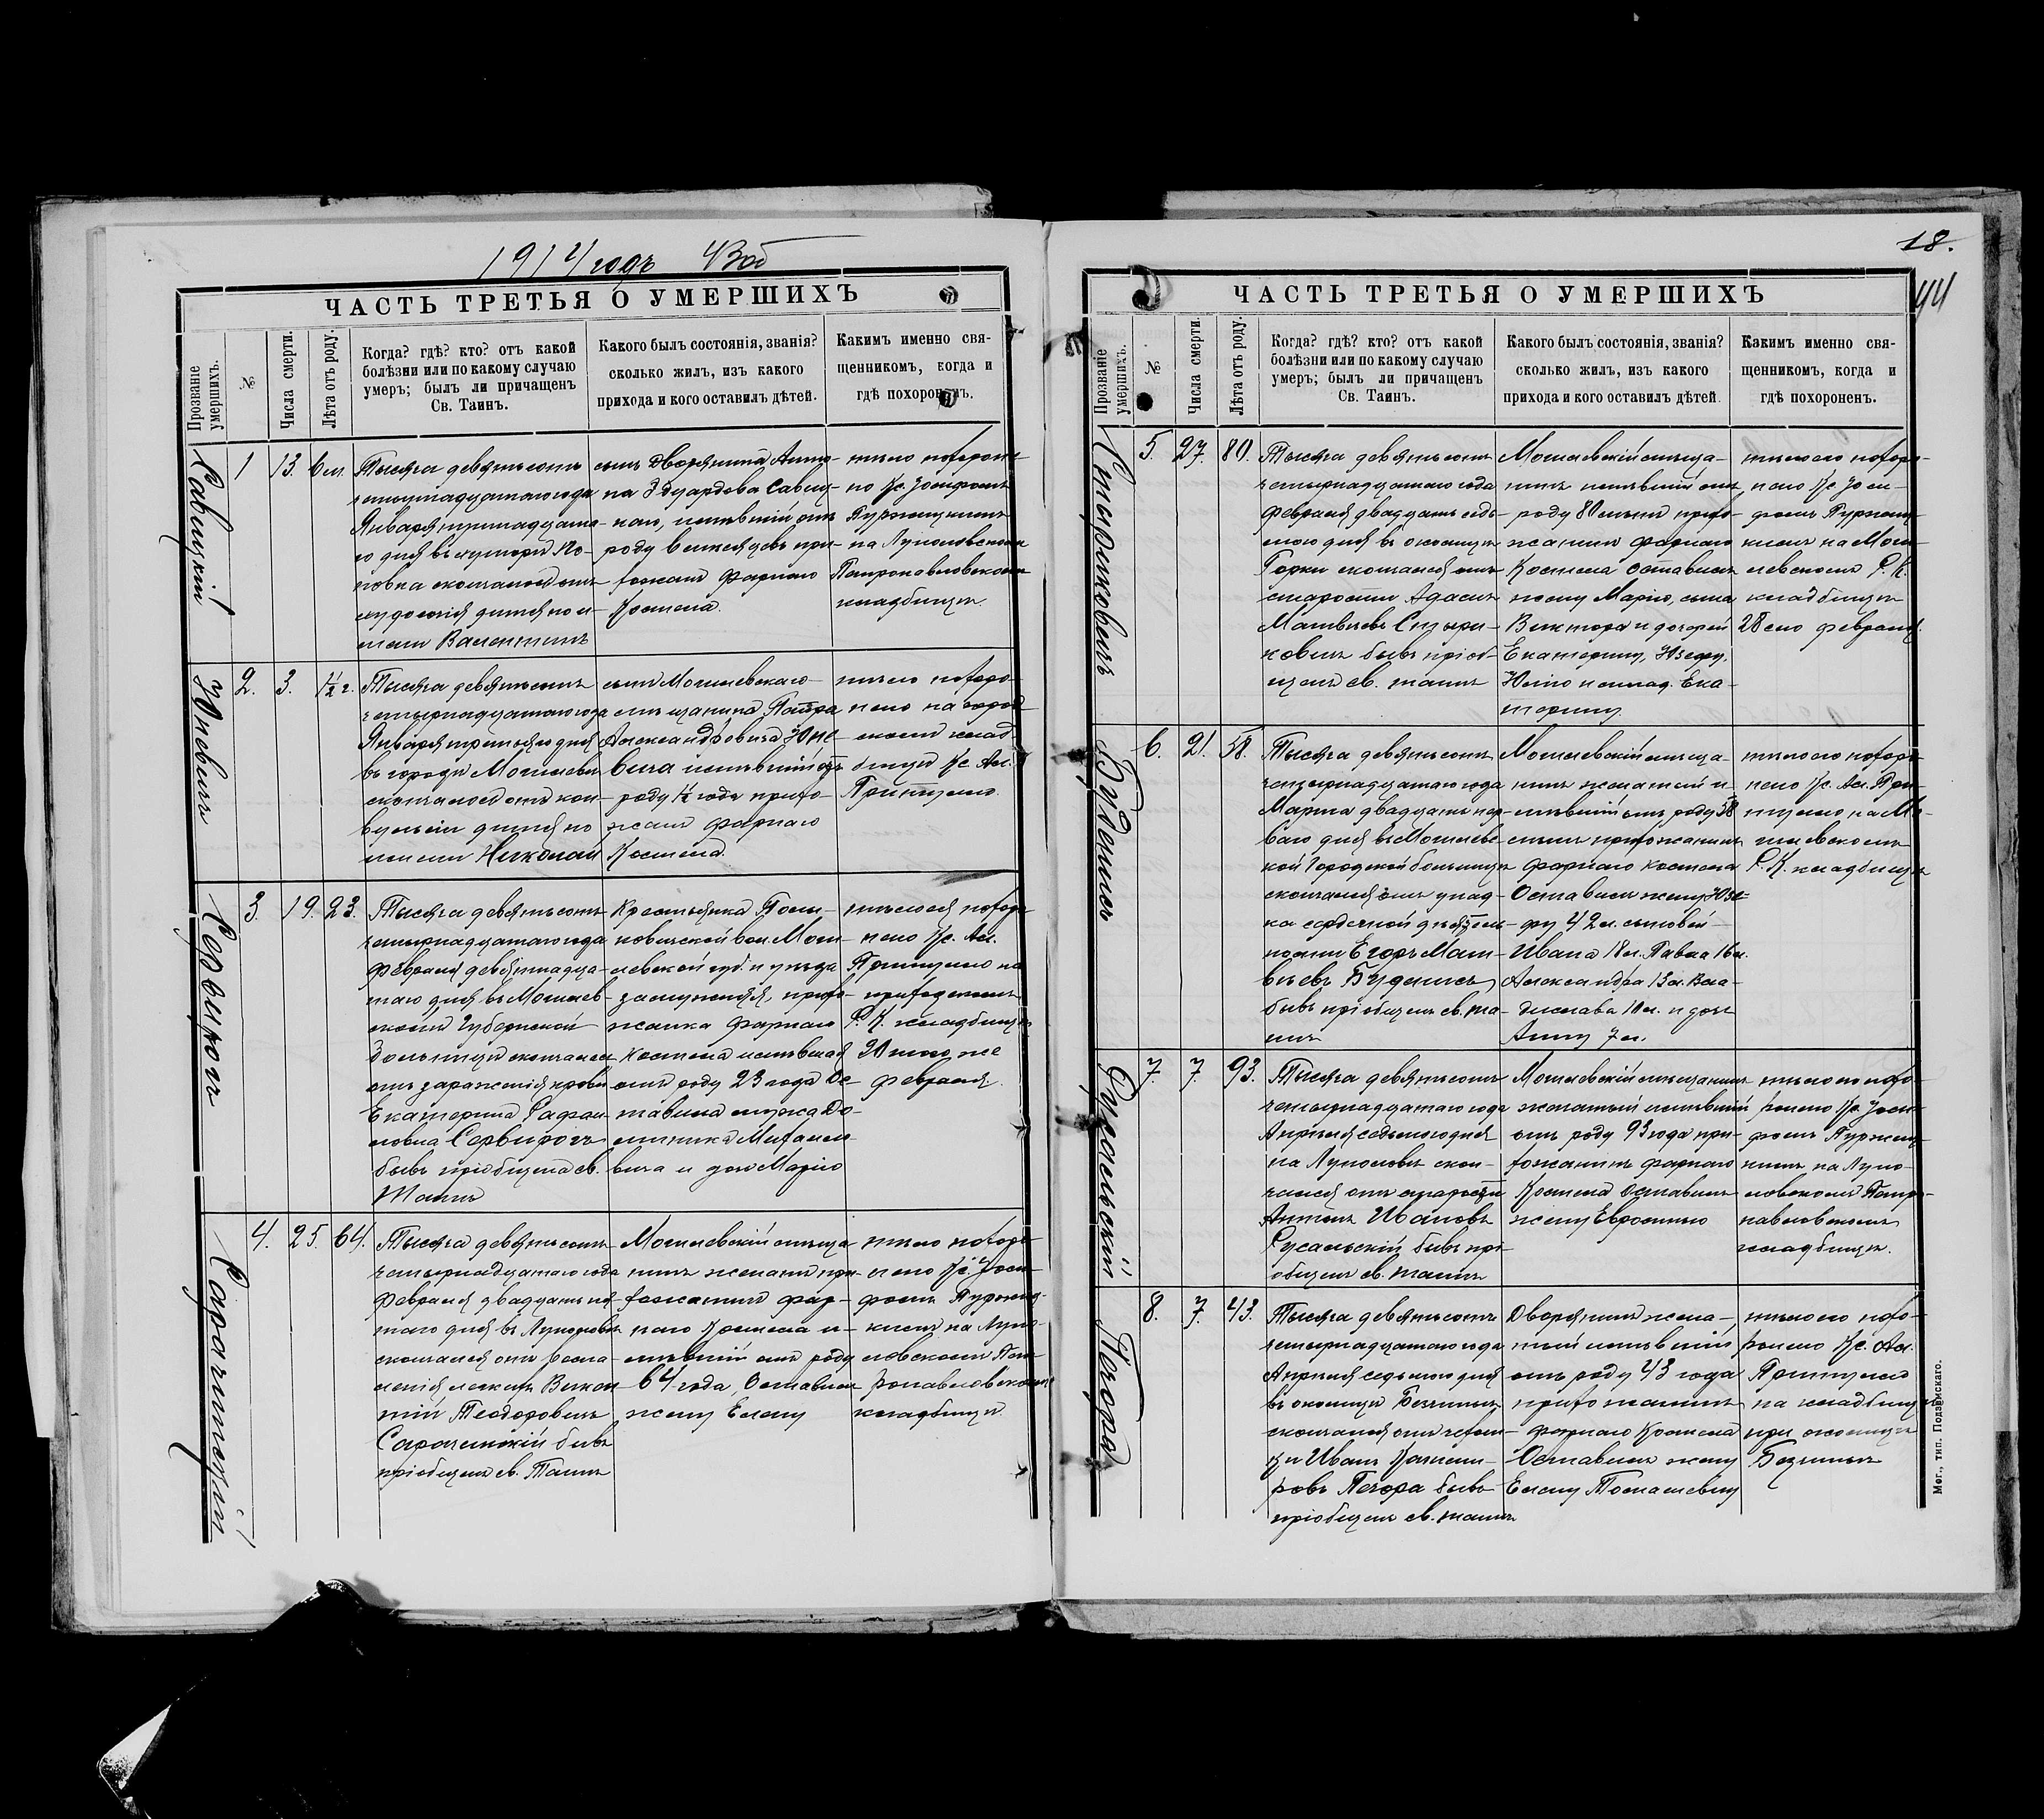 1914 годъ
ЧАСТЬ ТРЕТЬЯ О УМЕРШИХЪ
Прозваніе умершихъ.
№
Числа смерти.
Лѣта отъ роду.
Когда? гдѣ? кто? отъ какой
болѣзни или по какому случаю
умеръ; былъ ли причащенъ
Св. Таинъ.
Какого былъ состоянія, званія?
сколько жилъ, изъ какого
прихода и кого оставилъ дѣтей.
Каким именно свя-
щенникомъ, когда и
гдѣ похороненъ.
Савицкій
1 13. 6 м.
Тысяча девятьсотъ
четырнадцатаго года
Января тринадцата-
го дня въ хуторѣ По-
повка скончалось отъ
худосочія дитя по и-
мени Валентинъ
сынъ Дворянина Анто-
на Эдуардова Савиц-
каго, имѣвшій отъ
роду 6 мѣсяцевъ при-
хожанъ Фарнаго
Костела.
тѣло похороне-
но Кс. Іосифомъ
Пуржицкимъ
на Луполовскомъ
Петропавловскомъ
кладбищѣ.
Юневичъ
2. 3. 1½ г.
Тысяча девятьсотъ
четырнадцатаго года
Января третьяго дня
въ городѣ Могилевѣ
скончалось отъ кон-
вульсіи дитя по
имени Николай
сынъ Могилевскаго
мѣщанина Петра
Александровича Юне-
вича имѣвшій отъ
роду 1½ года прихо-
жанъ Фарнаго
Костела.
тѣло похоро-
нено на город-
скомъ клад-
бищѣ Кс. Ал.
3. 19. 23.
Тысяча девятьсотъ
четырнадцатаго года
Февраля девятнадца-
таго дня въ Могилев-
ской Губернской
больницѣ скончалась
отъ зараженія крови
Екатерина Рафаи-
ловна
бывъ пріобщена св.
Таинъ
Крестьянка
Моги-
левской губ. и уѣзда
замужняя, прихо-
жанка Фарнаго
Костела имѣвшая
отъ роду 23 года Ос-
тавила мужа До-
миника Михаило-
вича и дочь Марію
Р. К. кладбищѣ
20 того же
февраля.
4. 25. 64.
Тысяча девятьсотъ
четырнадцатаго года
Февраля двадцать пя-
таго дня въ Луполовѣ
скончался отъ воспа-
ленія легкихъ Викен-
тій Теодоровичъ
бывъ
пріобщенъ св. Таинъ
Могилевскій мѣща-
нинъ женатый при-
хожанинъ фар-
наго Костела и-
мѣвшій отъ роду
64 года, Оставилъ
жену Елену
тѣло похоро-
нено Кс. Іоси-
фомъ Пуржиц-
кимъ на Лупо-
ловскомъ Пет-
ропавловскомъ
кладбищѣ.
18.
44
ЧАСТЬ ТРЕТЬЯ О УМЕРШИХЪ
Прозваніе умершихъ.
№
Числа смерти.
Лѣта отъ роду.
Когда? гдѣ? кто? отъ какой
болѣзни или по какому случаю
умеръ; былъ ли причащенъ
Св. Таинъ.
Какого былъ состоянія, званія?
сколько жилъ, изъ какого
прихода и кого оставилъ дѣтей.
Каким именно свя-
щенникомъ, когда и
гдѣ похороненъ.
5. 27. 80.
Тысяча девятьсотъ
четырнадцатаго года
Февраля двадцать седь-
маго дня въ околицѣ
Горки скончался отъ
старости Адамъ
Матвѣевъ
бывъ пріоб-
щенъ св. таинъ
Могилевскій мѣща-
нинъ имѣвшій отъ
роду 80 лѣтъ прихо-
жанинъ фарнаго
Костела Оставилъ
жену Марію, сына
Виктора и дочерей
Екатерину, Юзефу,
Юлію и млад. Ека-
терину.
тѣло его похоро-
нено Кс. Іоси-
фомъ Пуржиц-
кимъ на Моги-
левскомъ Р. К.
кладбищѣ
28 сего февраля.
6. 21. 58.
Тысяча девятьсотъ
четырнадцатаго года
Марта двадцать пер-
ваго дня въ Могилевс-
кой Городской больницѣ
скончался отъ упад-
ка сердечной дѣятель-
ности Егоръ Мат-
вѣевъ
бывъ пріобщенъ св. та-
инъ
Могилевскій мѣща-
нинъ женатый и-
мѣвшій отъ роду 58
лѣтъ прихожанинъ
фарнаго костела
Оставилъ жену Юзе-
фу 42 л. сыновей
Ивана 18 л. Павла 16 л.
Александра 13 л. Вла-
дислава 10 л. и дочь
Анну 7 л.
Р. К. кладбищѣ
Русальскій
7. 7. 93.
Тысяча девятьсотъ
четырнадцатаго года
Апрѣля седьмого дня
на Луполовѣ скон-
чался отъ старости
Антонъ Ивановъ
Русальскій бывъ прі-
общенъ св. таинъ
Могилевскій мѣщанинъ
женатый имѣвшій
отъ роду 93 года при-
хожанинъ фарнаго
Костела Оставилъ
жену Евфросинію
тѣло его похо-
ронено Кс. Іоси-
фомъ Пуржиц-
кимъ на Лупо-
ловскомъ Петро-
павловскомъ
кладбищѣ.
Печора
8. 7. 43.
Тысяча девятьсотъ
четырнадцатаго года
Апрѣля седьмого дня
въ околицѣ
скончался отъ чахот-
ки Иванъ Казими-
ровъ Печора бывъ
пріобщенъ св. таинъ
Дворянинъ жена-
тый имѣвшій
отъ роду 43 года
прихожанинъ
фарнаго Костела
Оставилъ жену
Елену
тѣло его похо-
ронено Кс. Ал.
на кладбищѣ
при околицѣ
Мог., тип. Подземскаго.